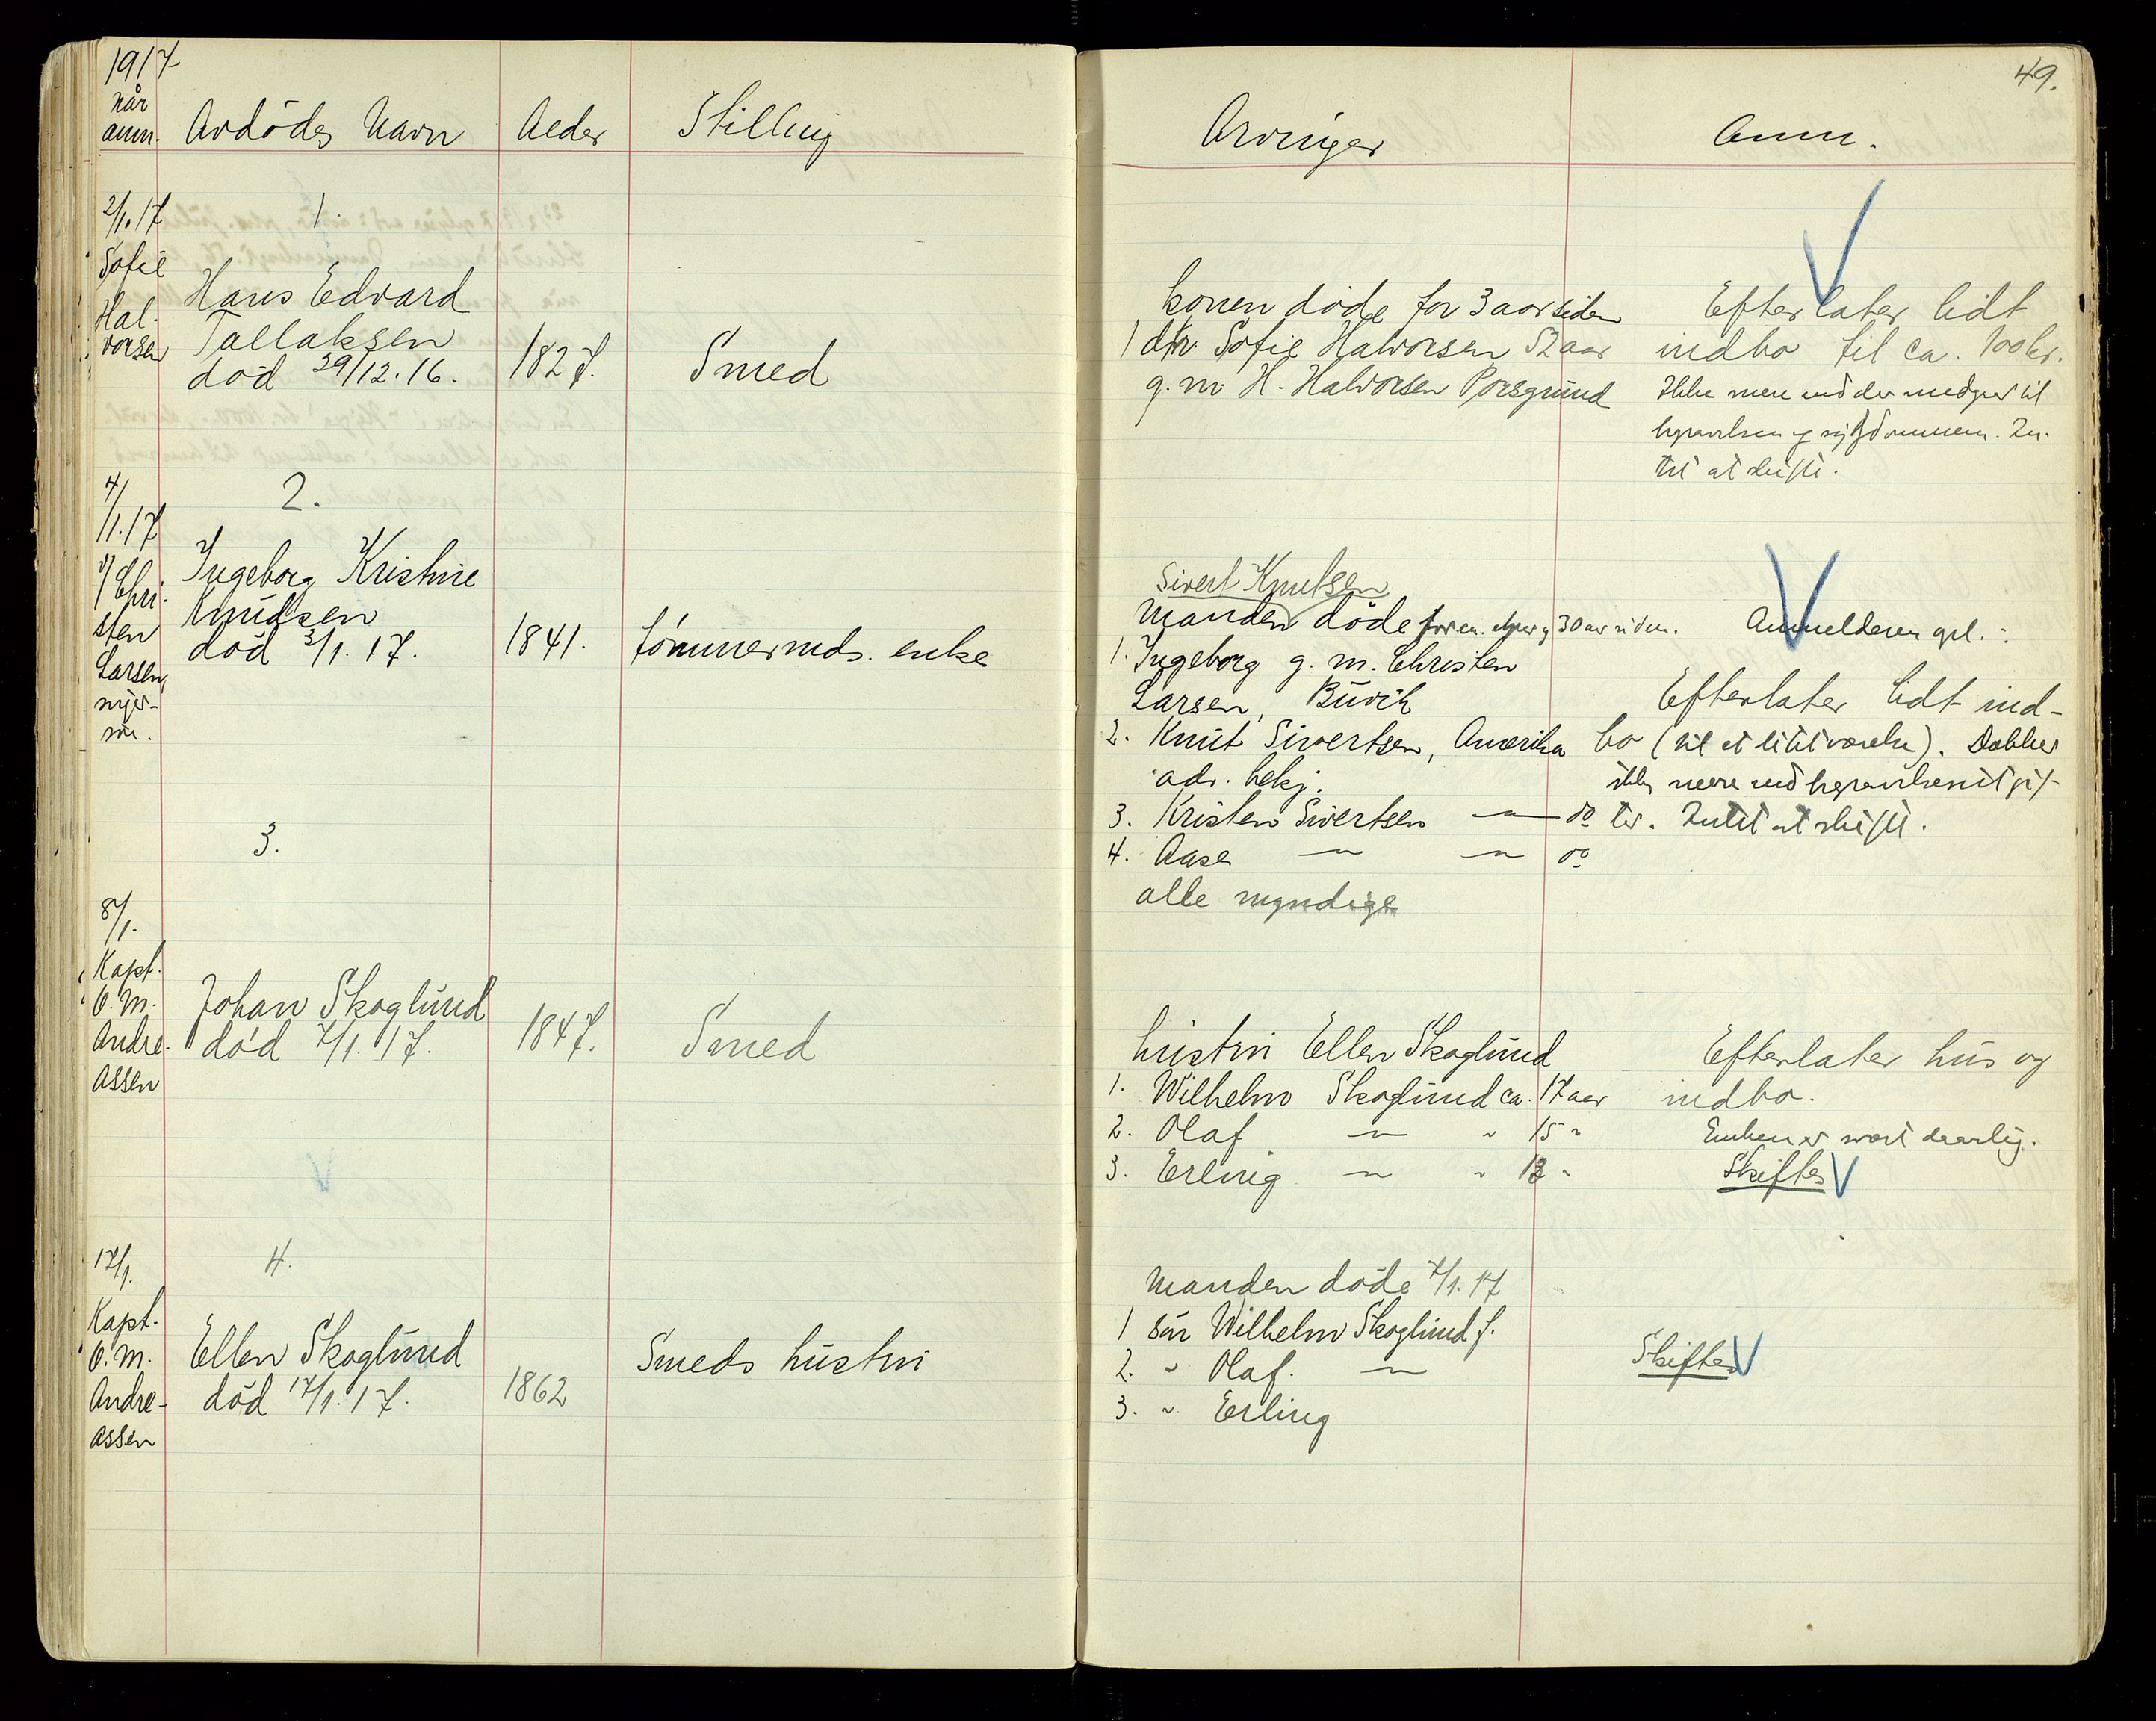 1917
når
anm.
Avdødes Navn
Alder
Stilling
Arvinger
Anm.
49.
2/1.17
Sofie
Hal-
vorsen
1.
Hans Edvard
Tallaksen
død 29/12.16.
1827.
Smed
konen døde for 3 aar siden
1 dtr. Sofie Halvorsen 52 aar
g.m. H. Halvorsen Porsgrund
Efterlater lidt
indbo til ca. 100 kr.
Ikke mere end der medgaar til
begravelsen og sygdommen. In-
tet at skifte.
4/1.17
v/Chri-
sten
Larsen,
2.
Ingeborg Kristine
Knudsen
død 3/1.17.
1841.
tømmermds. enke
Sivert Knutsen
Manden døde for en 30 aar siden.
1. Ingeborg g. m. Christen
Larsen, Buvik
2. Knut Sivertsen, Amerika
adr. bekj.
3. Kristen Sivertsen — " — do
4. Aase — " — " do
alle myndige
Anmelderen opl.:
Efterlater lidt ind-
bo (til et litet værelse). Dækker
ikke mere end begravelsesutgif-
ter. Intet at skifte.
3.
8/1.
Kapt.
O. M.
Andre-
assen
Johan Skoglund
død 7/1.17.
1847.
Smed
hustru Ellen Skoglund
1. Wilhelm Skoglund ca. 17 aar
2. Olaf — " — " 15 "
3. Erling — " — " 13 "
Efterlater hus og
indbo.
Enken er svært daarlig.
Skiftes
4.
17/1.
Kapt.
O. M.
Andre-
assen
Ellen Skoglund
død 17/1.17.
1862
Smeds hustru
Manden døde 7/1.17
1 søn Wilhelm Skoglund f.
2. " Olaf. — " —
3. " Erling
Skiftes